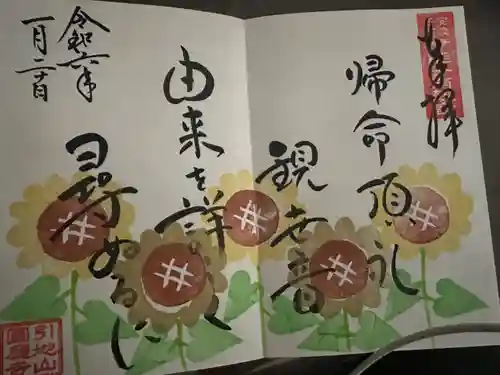 奉拝
帰命頂礼
観世音
由来を詳しく
尋ぬるに
令和六年
一月二十日
引地山